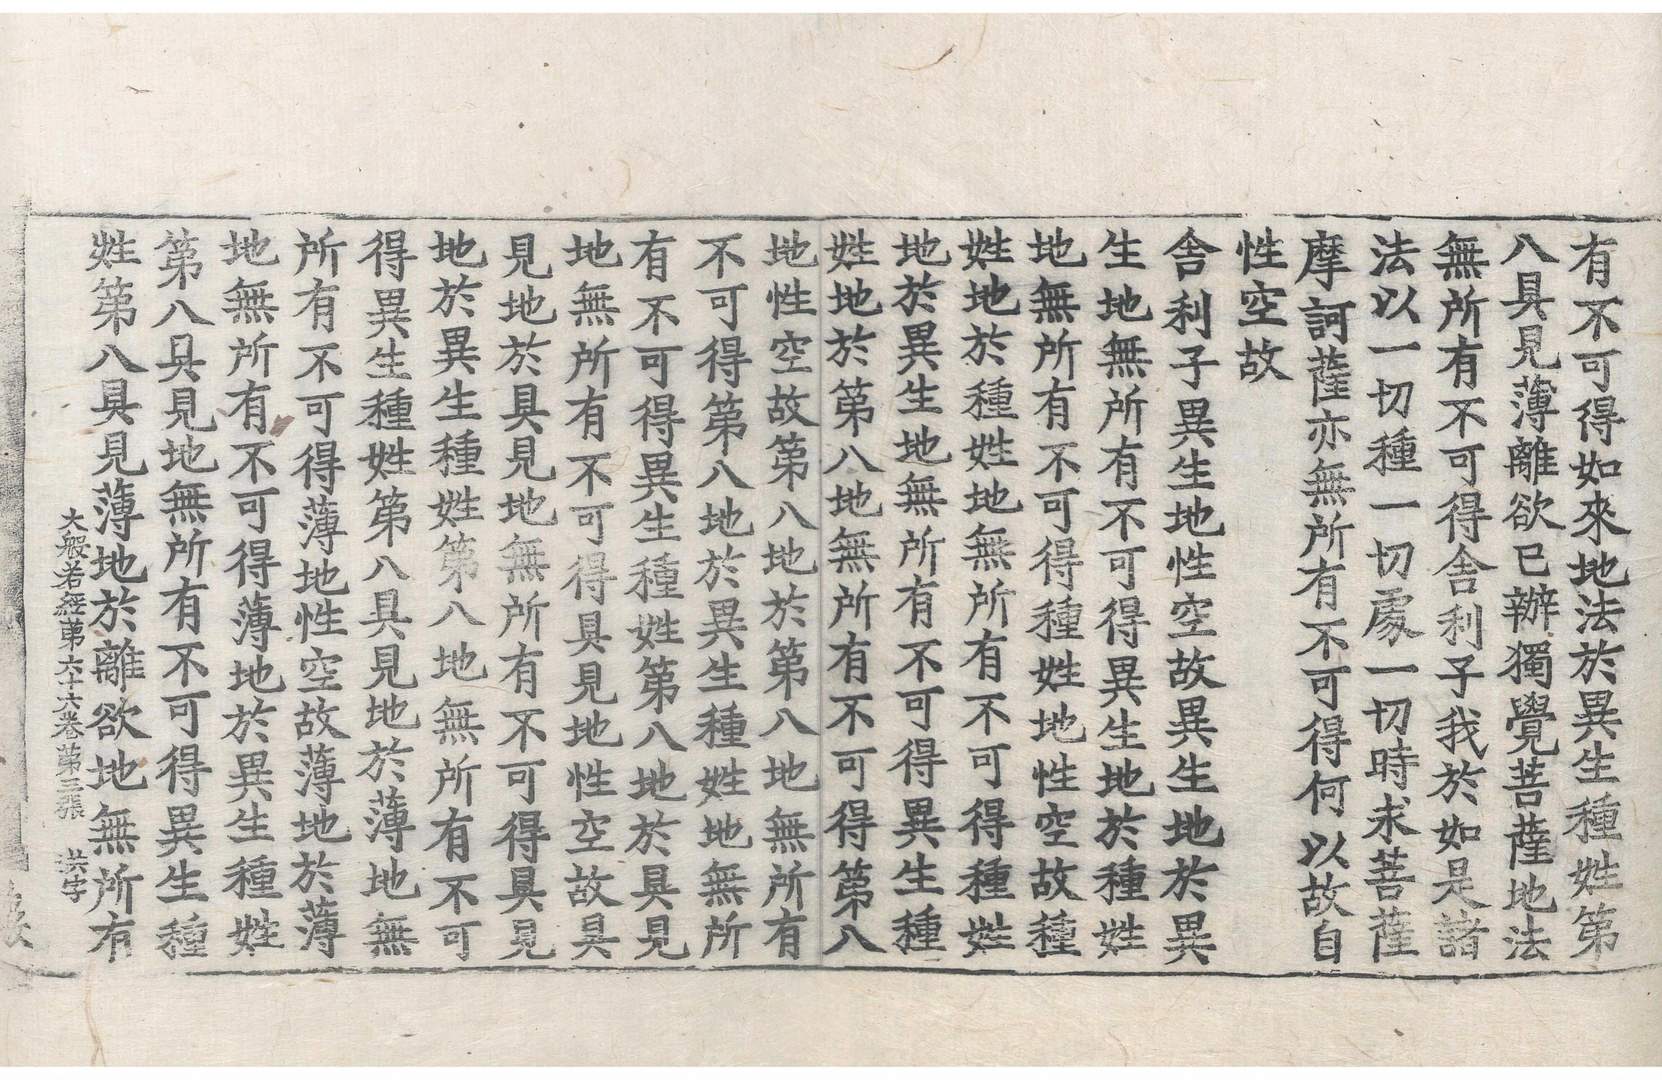 有不可得如來地法於異生種姓第
八具見薄離欲已辦獨覺菩薩地法
無所有不可得舍利子我於如是諸
法以一切種一切處一切時求菩薩
摩訶薩亦無所有不可得何以故自
性空故
舍利子異生地性空故異生地於異
生地無所有不可得異生地於種姓
地無所有不可得種姓地性空故種
姓地於種姓地無所有不可得種姓
地於異生地無所有不可得異生種
姓地於第八地無所有不可得第八
地性空故第八地於第八地無所有
不可得第八地於異生種姓地無所
有不可得異生種姓第八地於具見
地無所有不可得具見地性空故具
見地於具見地無所有不可得具見
地於異生種姓第八地無所有不可
得異生種姓第八具見地於薄地無
所有不可得薄地性空故薄地於薄
地無所有不可得薄地於異生種姓
第八具見地無所有不可得異生種
姓第八具見薄地於離欲地無所有
大般若經第六十六卷第三張 洪字